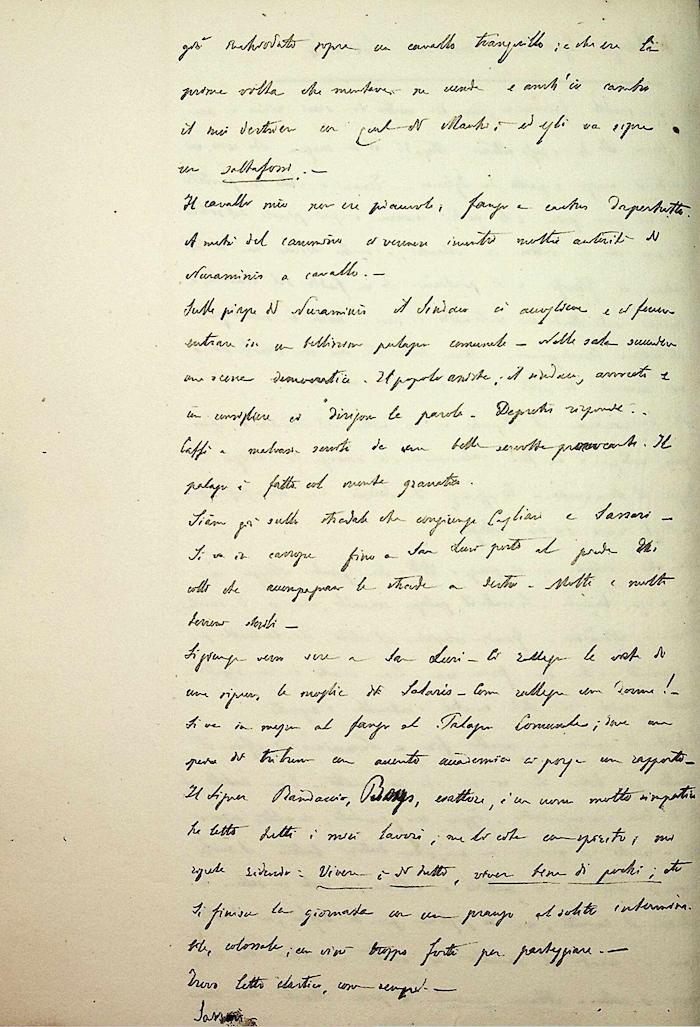 già sopra un cavallo tranquillo; e che era la
prima volta che montava, ne scende e anch'io cambio
il mio destriero con quel di Mantri; ed egli va sopra
un saltafossi. —
Il cavallo mio non era piacevole; fango e cactus dapertutto.
A metà del cammino ci vennero incontro molte autorità di
Nuraminis a cavallo. —
Sulla piazza di Nuraminis il Sindaco ci accogliene e ci fecero
entrare in un bellissimo palazzo comunale — Nella sala succedeva
una scena democratica. Il popolo assiste; il sindaco, avvocati e
un consigliere ci dirigono la parola. Depretis risponde. —
Caffè e malvasia serviti da una bella servotta provocante. Il
palazzo è fatto col monte granatico.
Siamo già sullo stradale che congiunge Cagliari e Sassari —
Si va in carrozza fino a San Luri posto al piede dei
colli che accompagnano la strada a destra. Molti e molti
terreni sterili —
Si giunge verso sera a San Luri — Ci rallegra la vista di
una signora, la moglie di Salaris — Come rallegra una donna! —
Si va in mezzo al fango al Palazzo Comunale; dove una
specie di tribuno con accento accademico ci porge un rapporto —
Il Signor Bandaccio, esattore, è un uomo molto simpatico
ha letto tutti i miei lavori; me li cita con spirito; mi
ripete ridendo: Vivere è di tutti, viver bene di pochi; etc
Si finisce la giornata con un pranzo al solito intermina-
bile, colossale; con vino troppo forte per pasteggiare. —
Trovo letto elastico, come sempre. —